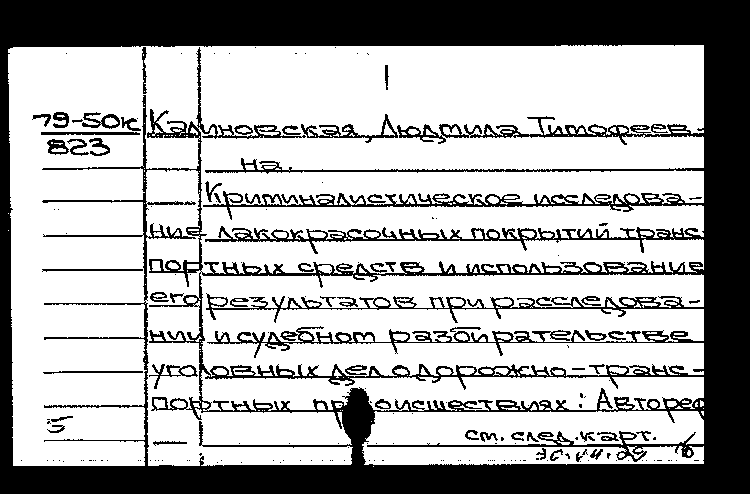 79-50к Калиновская, Людмила Тимофеев-
823
на.
Криминалистическое исследова-
ние лакокрасочных покрытий транс
портных средств и использование
его результатов при расследова-
нии и судебном разбирательстве
уголовных дел о дорожно-транс-
портных происшествиях: Автореф
5
см. след. карт.